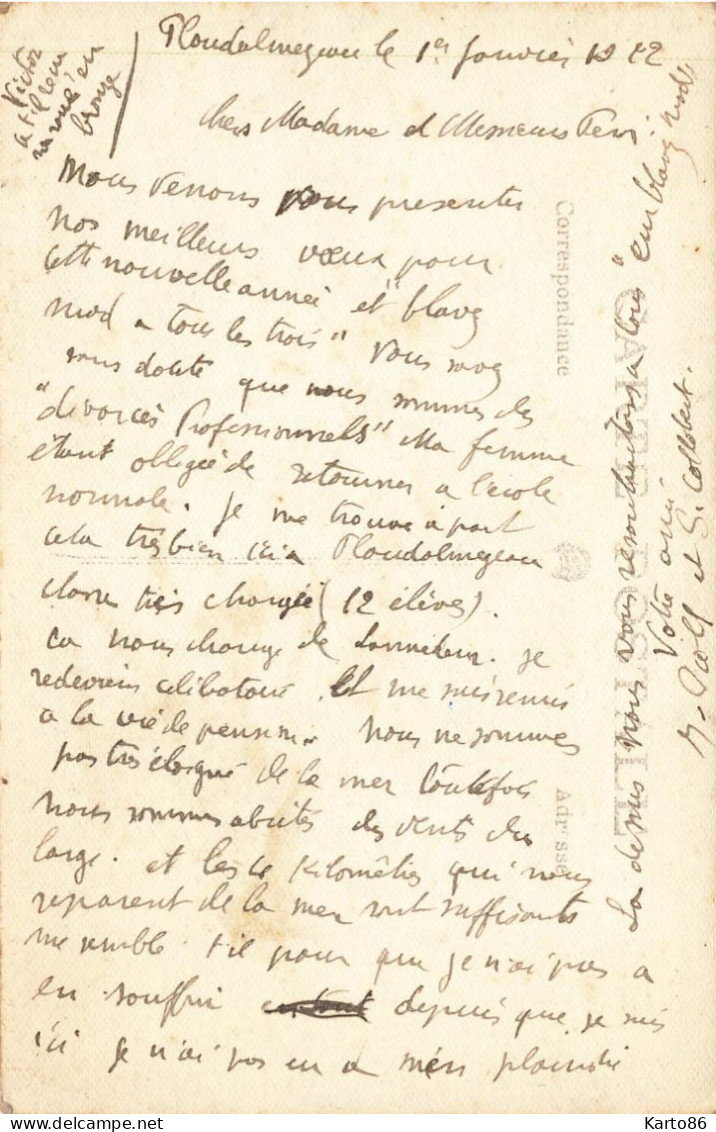 Ploudalmezeau le 1er Janvier 1922
Chers Madame et Messieurs
Nous venons vous presenter
nos meilleurs vœux pour
cette nouvelle année et "blavez
mad a tous les trois" Vous savez
sans doute que nous sommes des
"divorcés Professionnels" Ma femme
étant obligée de retourner a l'école
normale. Je me trouve à part
cela très bien ici a Ploudalmezeau
classe très chargée (12 élèves).
ca nous change de Lanmeleur. Je
redeviens célibataire. Et me suis remis
a la vie de pension. Nous ne sommes
pas très éloigné de la mer toutefois
nous sommes abrités des vents du
large. et les 4 kilomètres qui nous
separent de la mer sont suffisants
me semble t-il pour que je n'ai pas a
en souffrir depuis que je suis
ici je n'ai pas eu a m'en plaindre
La dessus nous vous resouhaitons a tous "eur blavez mad"
Votre ami
et G. Collobert.
Victor
a t-il reçu
sa roue en
bronze
Correspondance
CARTE POSTALE
Adresse
Karto86